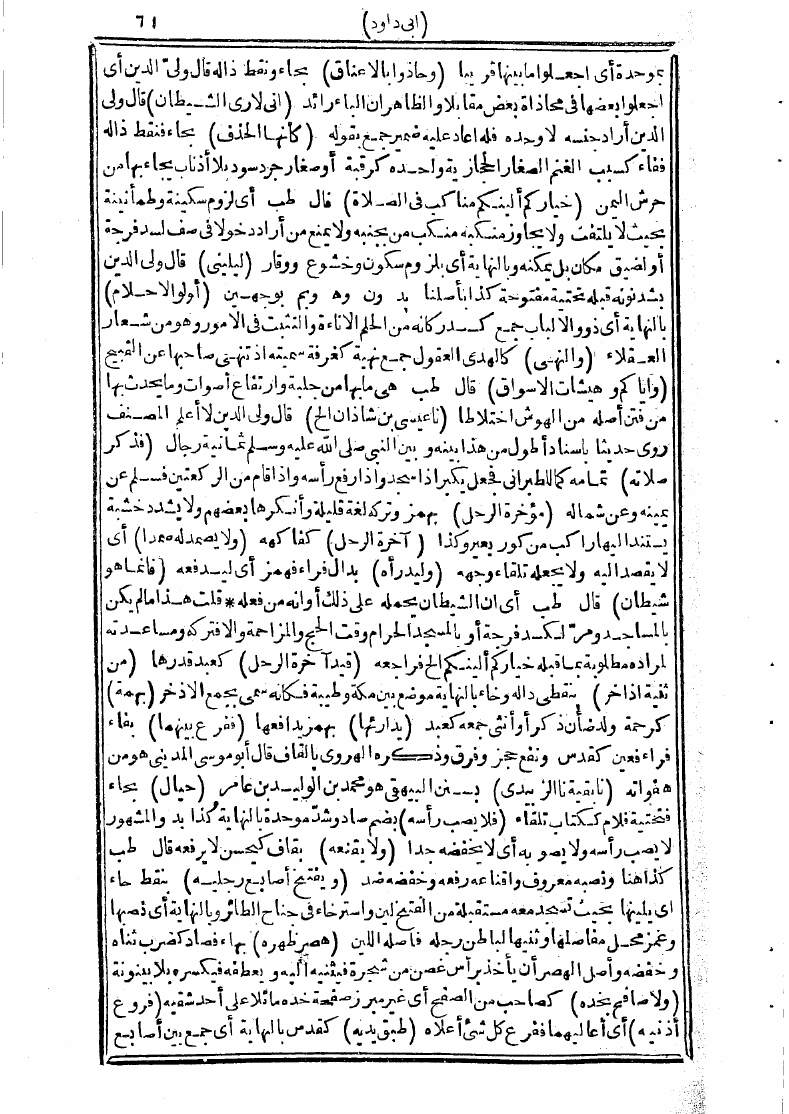 (ابى داود) ٦١
بموحدة أى اجعلوا ما بينها قريبا (وحاذوا بالاعناق) بحاء ونقط ذاله قال ولى الدين أى
اجعلوا بعضها فى محاذاة بعض مقابلا والظاهر ان الباء زائد (انى لارى الشيطان) قال ولى
الدين أراد جنسه لا وحده فله اعاد عليه ضمير جمع بقوله (كأنها الحذف) بحاء فنقط ذاله
ففاء كسبب الغنم الصغار الحجازية واحده كرقبة أو صغار جرد سود بلا أذناب يجاء بها من
جرش اليمن (خياركم ألينكم مناكب فى الصلاة) قال طب أى لزوم سكينة وطمأنينة
بحيث لا يلتفت ولا يحاوز منكبه منكب من بجنبه ولا يمنع من أراد دخولا فى صف لسد فرجة
أو لضيق مكان بل يمكنه وبالنهاية أى يلزوم سكون وخشوع ووقار (ليلينى) قال ولى الدين
بشد نونه قبله تحتية مفتوحة كذا بأصلنا بد ون وهـ ويم بوجهين (أولو الاحلام)
بالنهاية أى ذوو الالباب جمع كسدر كانه من الحلم الاناءة والتثبت فى الامور وهو من شعار
العقلاء (والنهى) كالهدى العقول جمع نهية كغرفة سميته اذ تنهى صاحبها عن القبيح
(وايا كم و هيشات الاسواق) قال طب هى ما بها من جلبة وارتفاع أصوات وما يحدث بها
من فتن أصله من الهوش اختلاطا (نا عيسى بن شاذان الخ) قال ولى الدين لا أعلم المصنف
روى حديثا باسناد أطول من هذا بينه و بين النبى صلى الله عليه وسلم ثمانية رجال (فذكر
صلاته) تمامه كما للطبرانى فجعل يكبر اذا سجد واذا رفع رأسه واذا قام من الركعتين فسلم عن
يمينه وعن شماله (مؤخرة الرحل) بهمز وتركه لغة قليلة وأنكرها بعضهم ولا يشدد خشبة
يستند اليها راكب من كور بعير وكذا (آخرة الرحل) كفاكهه (ولا يصمد له صمدا) أى
لا يقصد اليه ولا يجعله تلقاء وجهه (وليدرأه) بدال فراء فهمز أى ليدفعه (فانما هو
شيطان) قال طب أى ان الشيطان يحمله على ذلك أو انه من فعله * قلت هذا ما لم يكن
بالمساجد ومر لكسد فرجة أو بالمسجد الحرام وقت الحج والمزاحمة والا فتركه ومساعدته
لمراده مطلوبة بما قبله خياركم ألينكم الخ فراجعه (قيد آخرة الرحل) كعبد قدرها (من
ثنية اذاخر) بنقطى داله وخاء بالنهاية موضع بين مكة وطيبة فكانه سمى بجمع الاذخر (بهمة)
كرحمة ولد ضأن ذكر أو أنثى جمعه كعبد (يدارئها) بهمز يدافعها (ففرع بينهما) بفاء
فراء فعين كقدس ونفع حجز وفرق وذكره الهروى بالقاف قال أبو موسى المدينى هو من
هفواته (نا بقية نا الزبيدى) بسنن البيهقى هو محمد بن الوليد بن عامر (حيال) بحاء
فتحتية فلام ككتاب تلقاء (فلا يصب رأسه) بضم صاد وشد موحدة بالنهاية كذا بد والمشهور
لا يصب رأسه ولا يصوبه أى لا يخفضه جدا (ولا يقنعه) بقاف كيحسن لا يرفعه قال طب
كذا هنا ونصبه معروف واقناعه رفعه وخفضه ضد (ويفتخ أصابع رجليه) بنقط خاء
اى يلينها بحيث تسجد معه مستقبلة من الفتخ لين واسترخاء فى جناح الطائر وبالنهاية أى نصبها
وغمز محل مفاصلها وثنيها لباطن رجله فاصله اللين (هصر ظهره) بهاء فصاد كضرب ثناه
وخفضه وأصل الهصر أن يأخذ برأس غصن من شجرة فيثنيه اليه و يعطفه فيكسره بلا بينونة
(ولا صافح بخده) كصاحب من الصفح أى غير مبرز صفحة خده مائلا على أحد شقيه (فروع
أذنيه) أى أعاليهما ففرع كل شئ أعلاه (طبق يديه) كقدس بالنهاية أى جمع بين أصابع